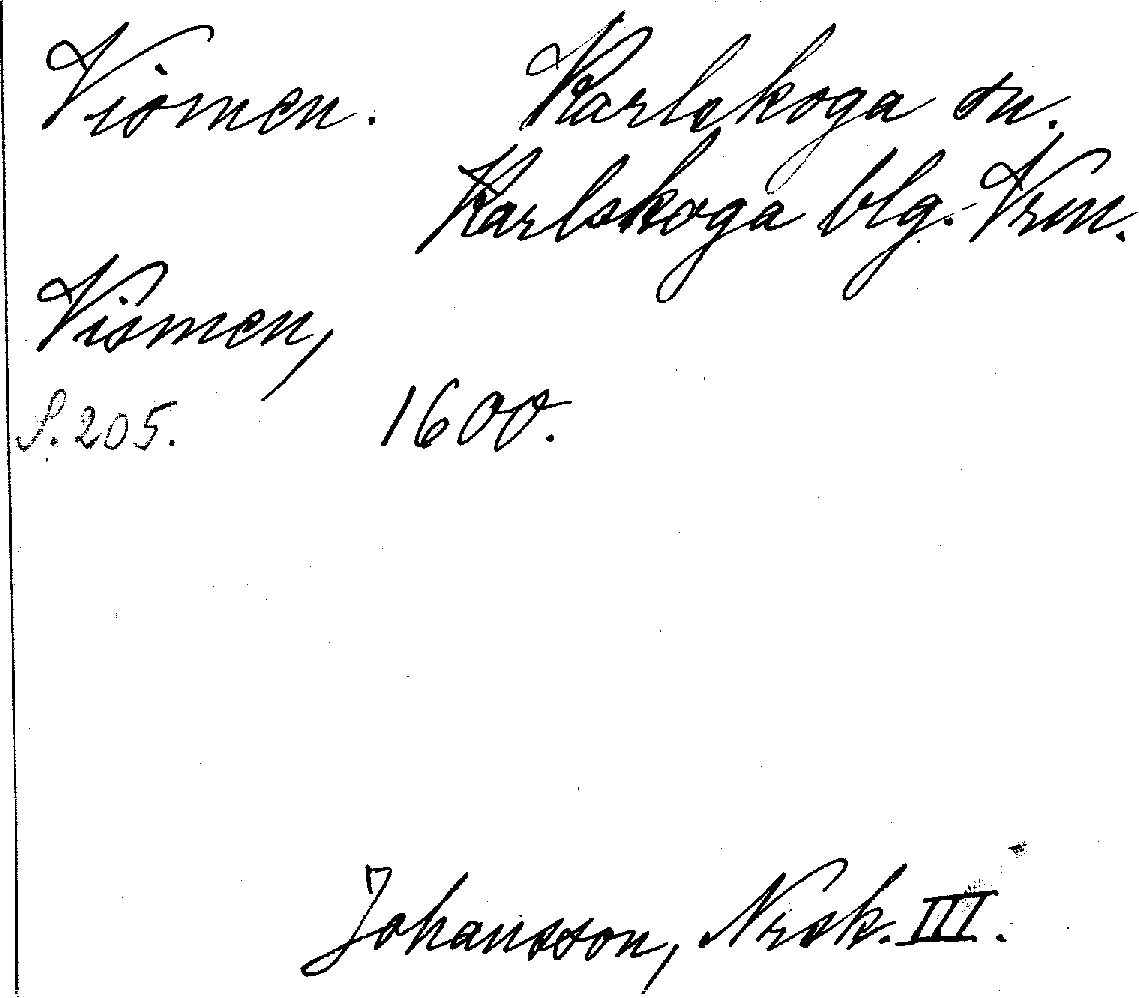 Vismen. Karlskoga sn.
Karlskoga blg. Vrm.
Vismen,
S. 205. 1600.
Johansson, Nrsk. III.